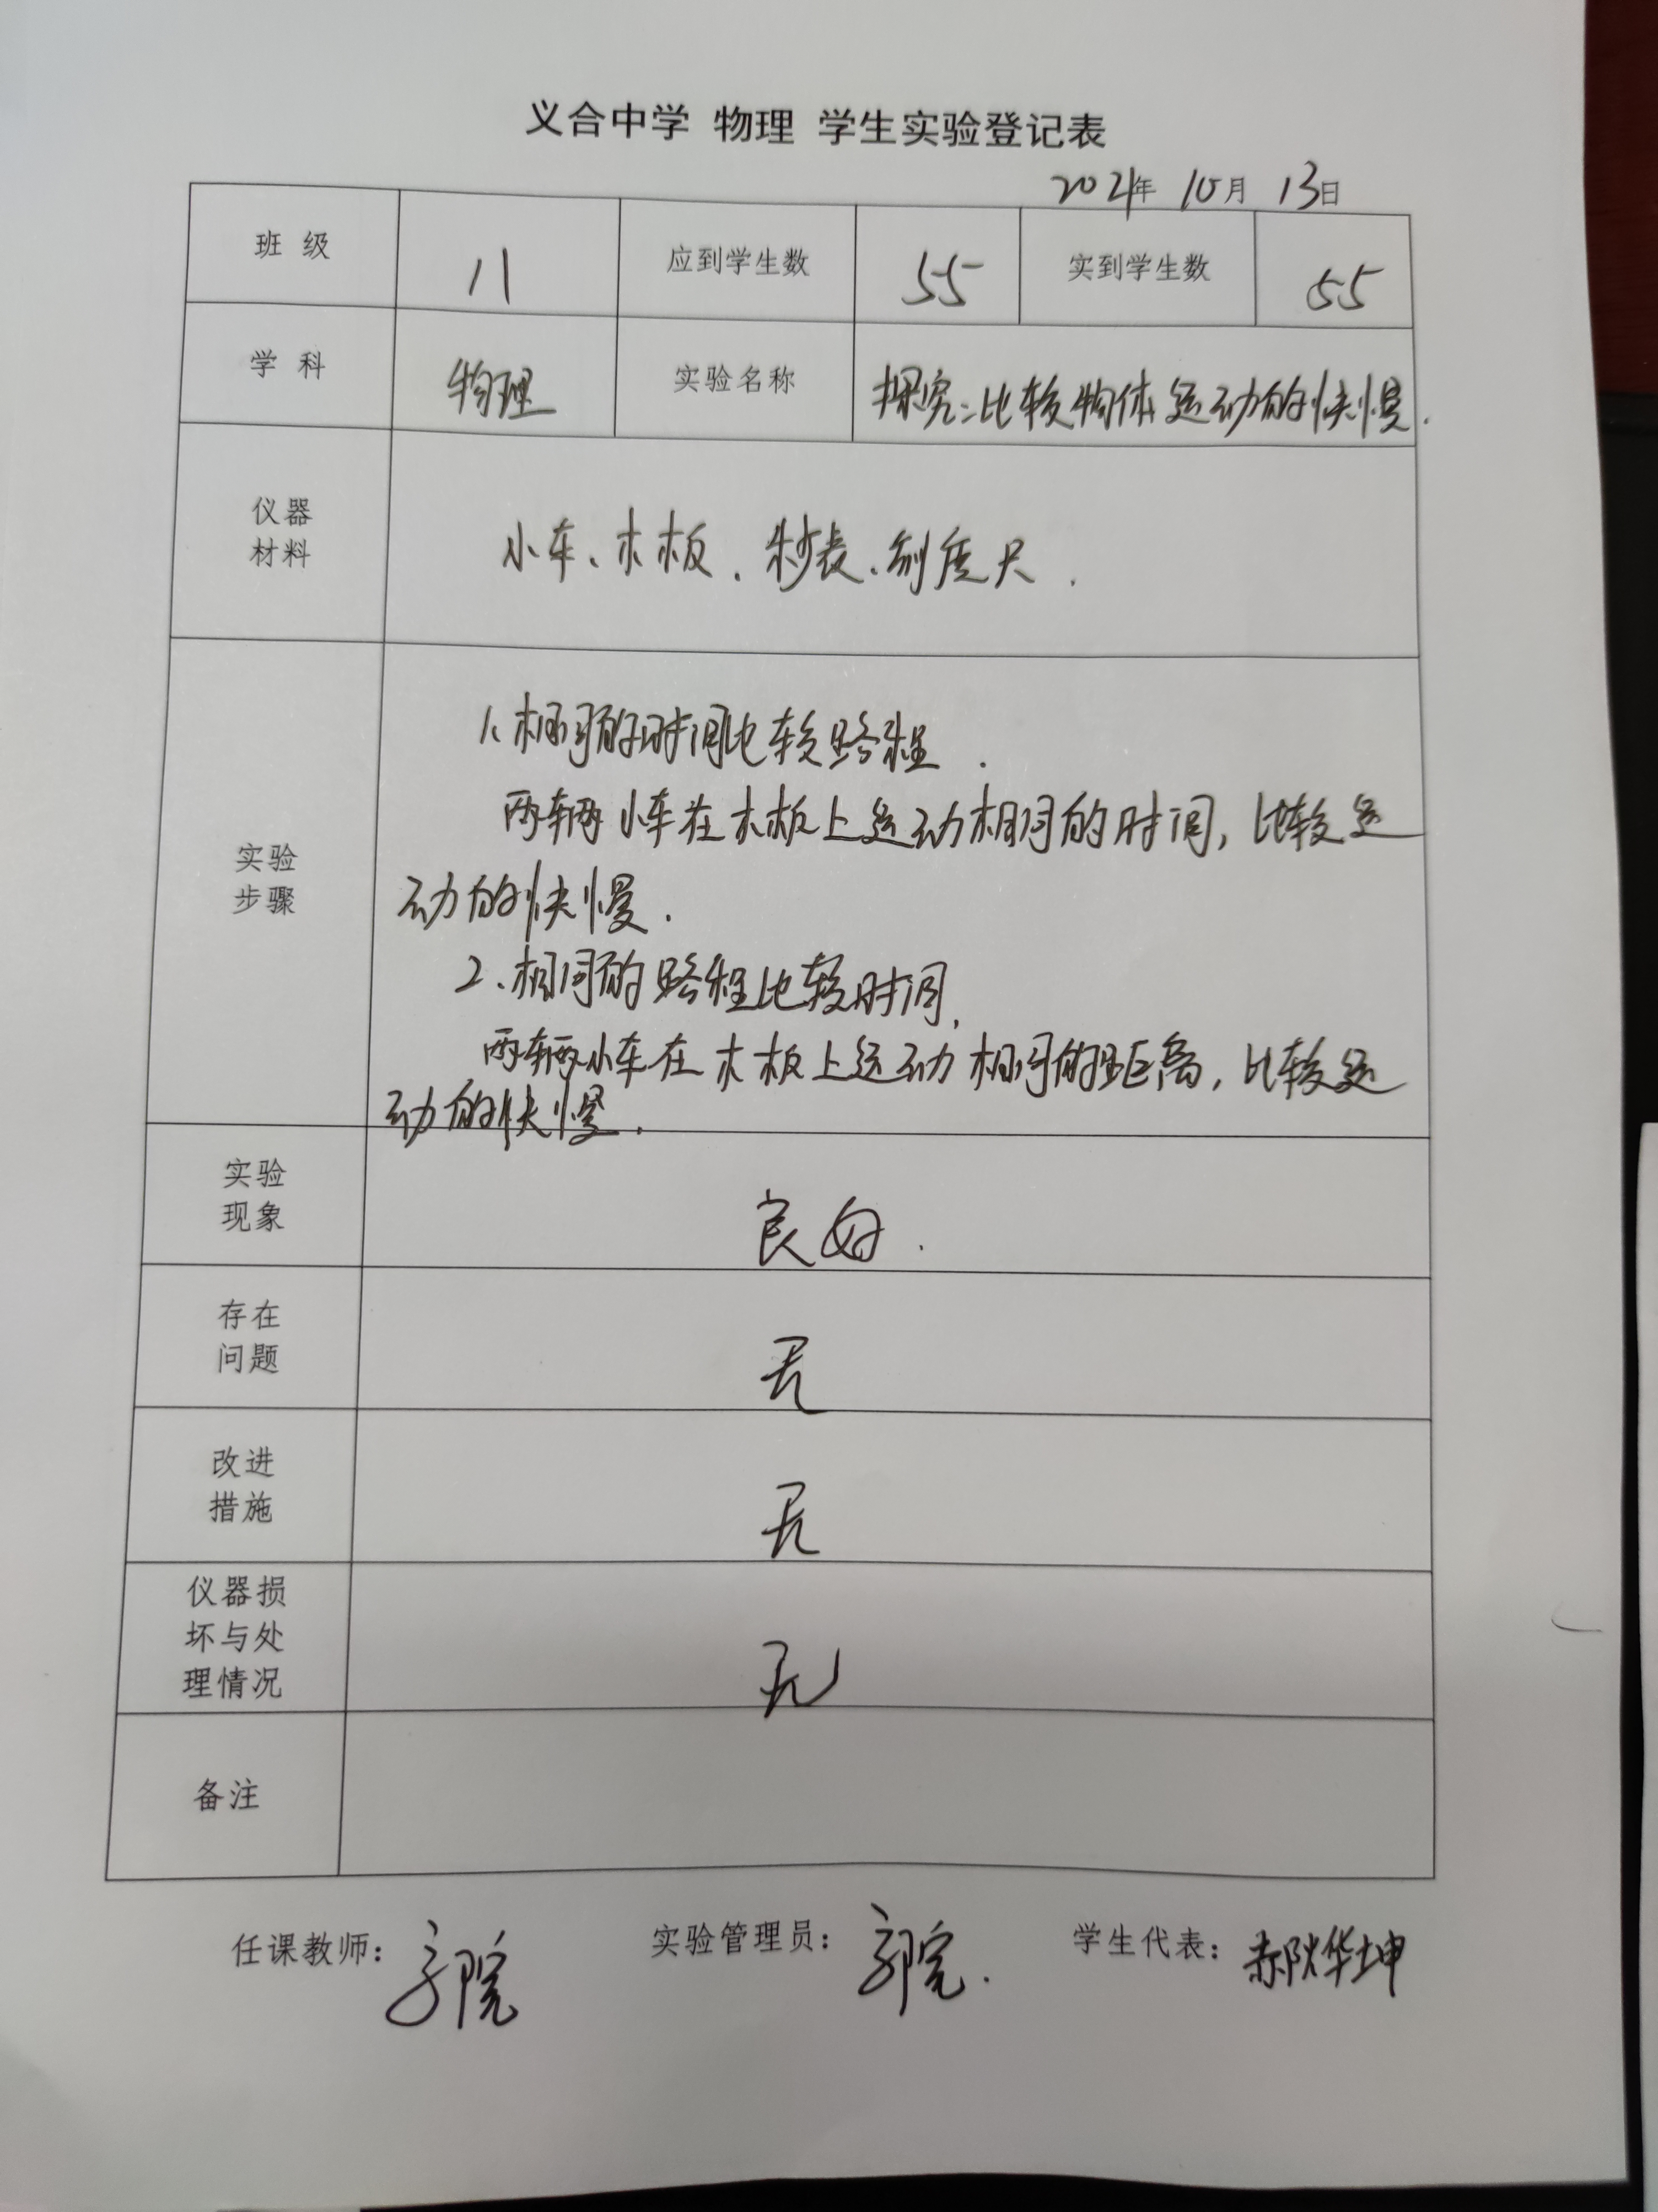 义合中学 物理 学生实验登记表
2021年 10月 13日
班级 八 应到学生数 55 实到学生数 55
学科 物理 实验名称 探究:比较物体运动的快慢.
仪器
材料
小车、木板、秒表、刻度尺.
实验
步骤
1.相同的时间比较路程.
两辆小车在木板上运动相同的时间,比较运
动的快慢.
2.相同的路程比较时间,
两辆小车在木板上运动相同的距离,比较运
动的快慢.
实验
现象
良好.
存在
问题
无
改进
措施
无
仪器损
坏与处
理情况
无
备注
任课教师: 实验管理员: 学生代表: